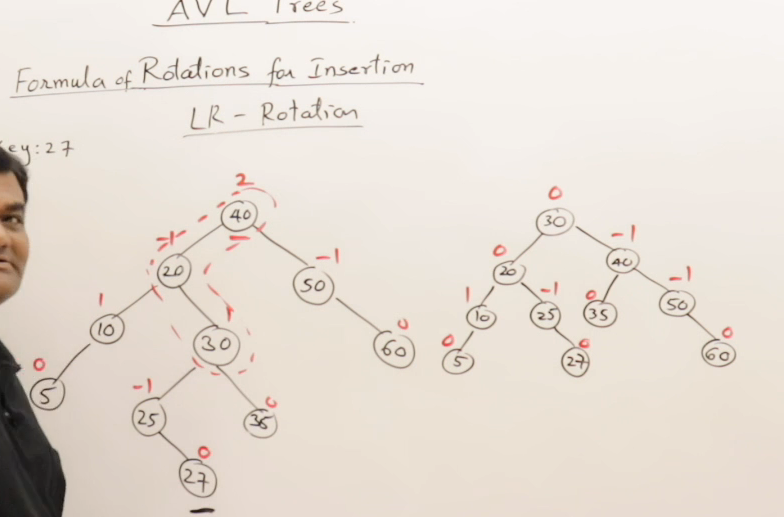 AVL Trees
Formula of Rotations for Insertion
LR - Rotation
ey: 27
2
40
-1
20
-1
50
1
10
30
0
60
0
5
-1
25
0
36
0
27
0
30
0
20
-1
40
1
10
-1
25
0
35
-1
50
0
5
0
27
0
60